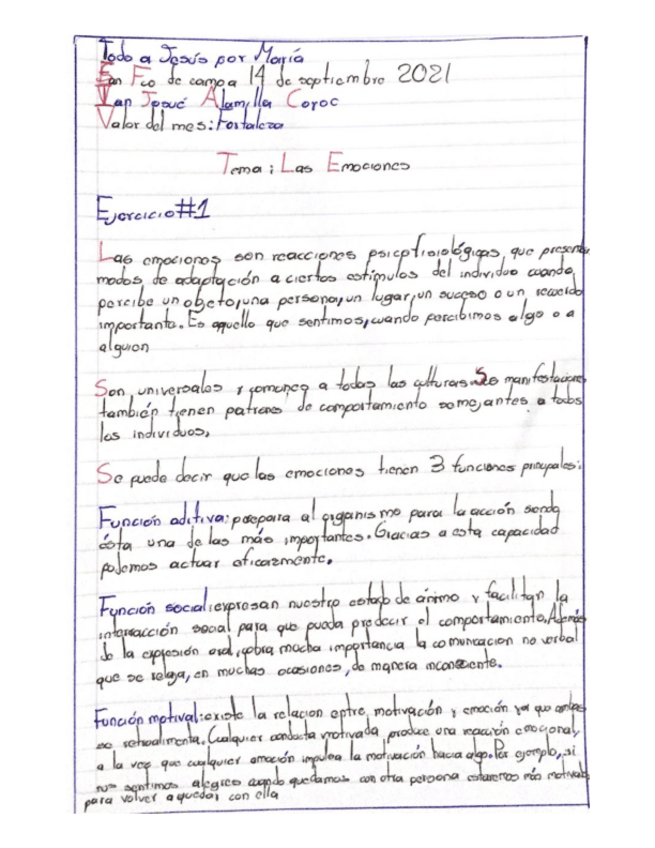 Todo a Jesús por María
San Fco de campo a 14 de septiembre 2021
Ivan Josué Alamilla Coyoc
Valor del mes: Fortaleza
Tema: Las Emociones
Ejercicio #1
Las emociones son reacciones psicofisiológicas, que presentan
modos de adaptación a ciertos estímulos del individuo cuando
percibe un objeto, una persona, un lugar, un suceso o un recuerdo
importante. Es aquello que sentimos, cuando percibimos algo o a
alguien
Son universales y comunes a todas las culturas. Sus manifestaciones
también tienen patrones de comportamiento semejantes a todos
los individuos.
Se puede decir que las emociones tienen 3 funciones principales:
Función aditiva: prepara al organismo para la acción sendo
ésta una de las más importantes. Gracias a esta capacidad
podemos actuar eficazmente.
Función social: expresan nuestro estado de ánimo y facilitan la
interacción social para que pueda predecir el comportamiento. Además
de la expresión oral, cobra mucha importancia la comunicación no verbal
que se relaja, en muchas ocasiones, de manera inconsciente.
Función motival: existe la relacion entre, motivación y emoción ya que ambas
se retroalimenta. Cualquier conducta motivada produce una reacción emocional,
a la vez que cualquier emoción impulsa la motivación hacia algo. Por ejemplo, si
nos sentimos alegres cuando quedamos con otra persona estaremos más motivados
para volver a quedar con ella